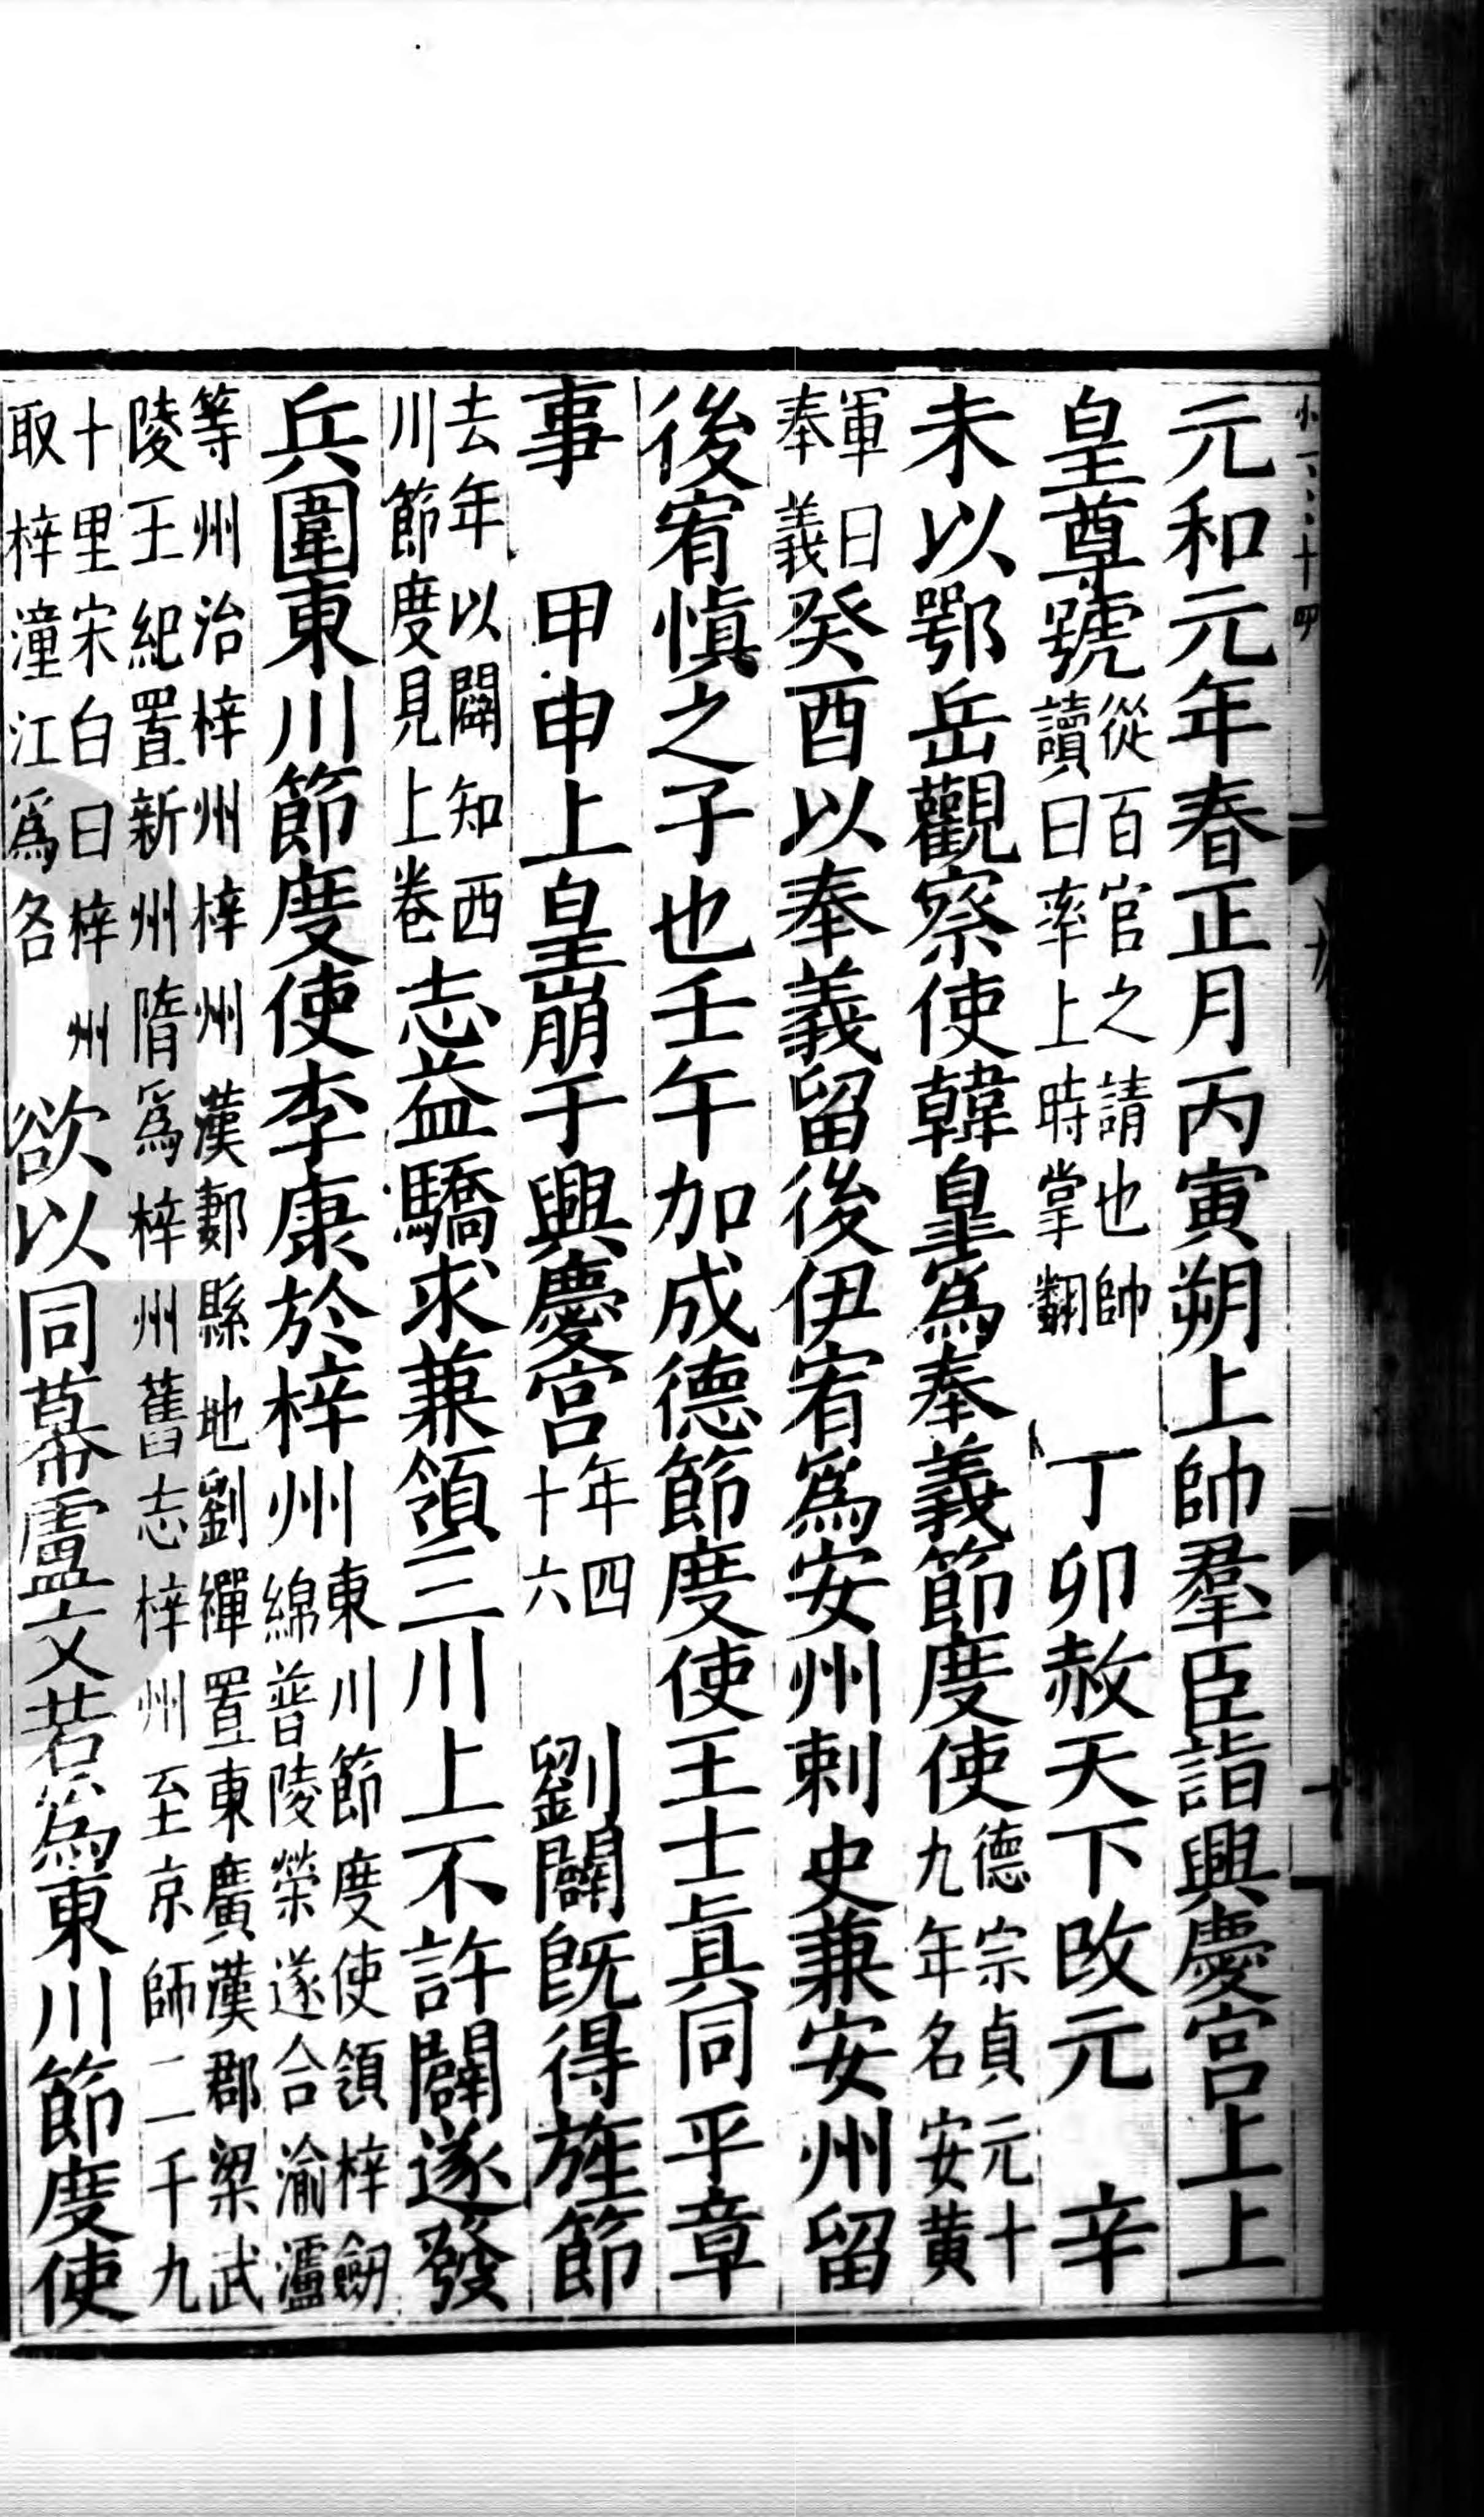 元和元年春正月丙寅朔上帥羣臣詣興慶宮上上
皇尊號從百官之請也帥讀曰率上時掌翻 丁卯赦天下改元 辛
未以鄂岳觀察使韓皐爲奉義節度使德宗貞元十九年名安黃
軍曰奉義癸酉以奉義留後伊宥爲安州刺史兼安州留
後宥愼之子也壬午加成德節度使王士眞同平章
事 甲申上皇崩于興慶宮年四十六 劉闢旣得旌節
去年以闢知西川節度見上卷志益驕求兼領三川上不許闢遂發
兵圍東川節度使李康於梓州東川節度使領梓劒綿普陵榮遂合渝瀘
等州治梓州梓州漢郪縣地劉禪置東廣漢郡梁武陵王紀置新州隋爲梓州舊志梓州至京師二千九
十里宋白曰梓州取梓潼江爲名欲以同幕盧文若爲東川節度使